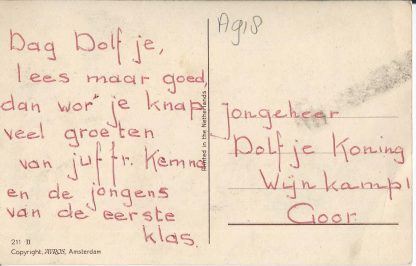 Ag18
Dag Dolfje,
lees maar goed,
dan wor' je knap
veel groeten
van juffr. Kemna
en de jongens
van de eerste
klas.
Jongeheer
Dolfje Koning
Wijnkampl
Goor.
Printed in the Netherlands
211 11
Copyright, AVROS, Amsterdam